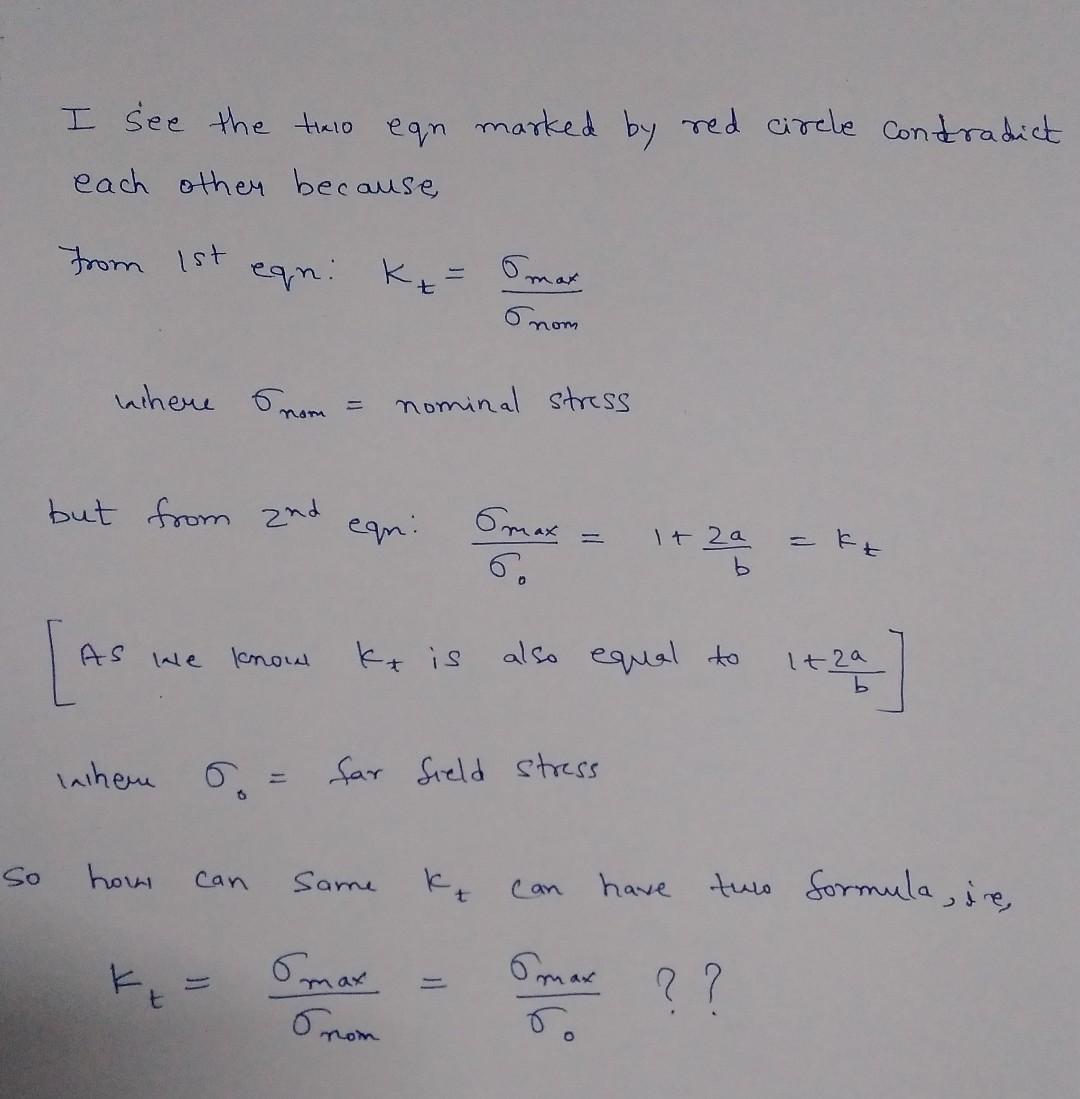 I see the two eqn marked by red circle contradict
each other because,
from 1st eqn: K_t = σ_max / σ_nom
where σ_nom = nominal stress
but from 2nd eqn: σ_max / σ_0 = 1 + 2a / b = K_t
[As we know K_t is also equal to 1 + 2a / b]
where σ_0 = far field stress
So how can same K_t can have two formula, i.e,
K_t = σ_max / σ_nom = σ_max / σ_0 ??